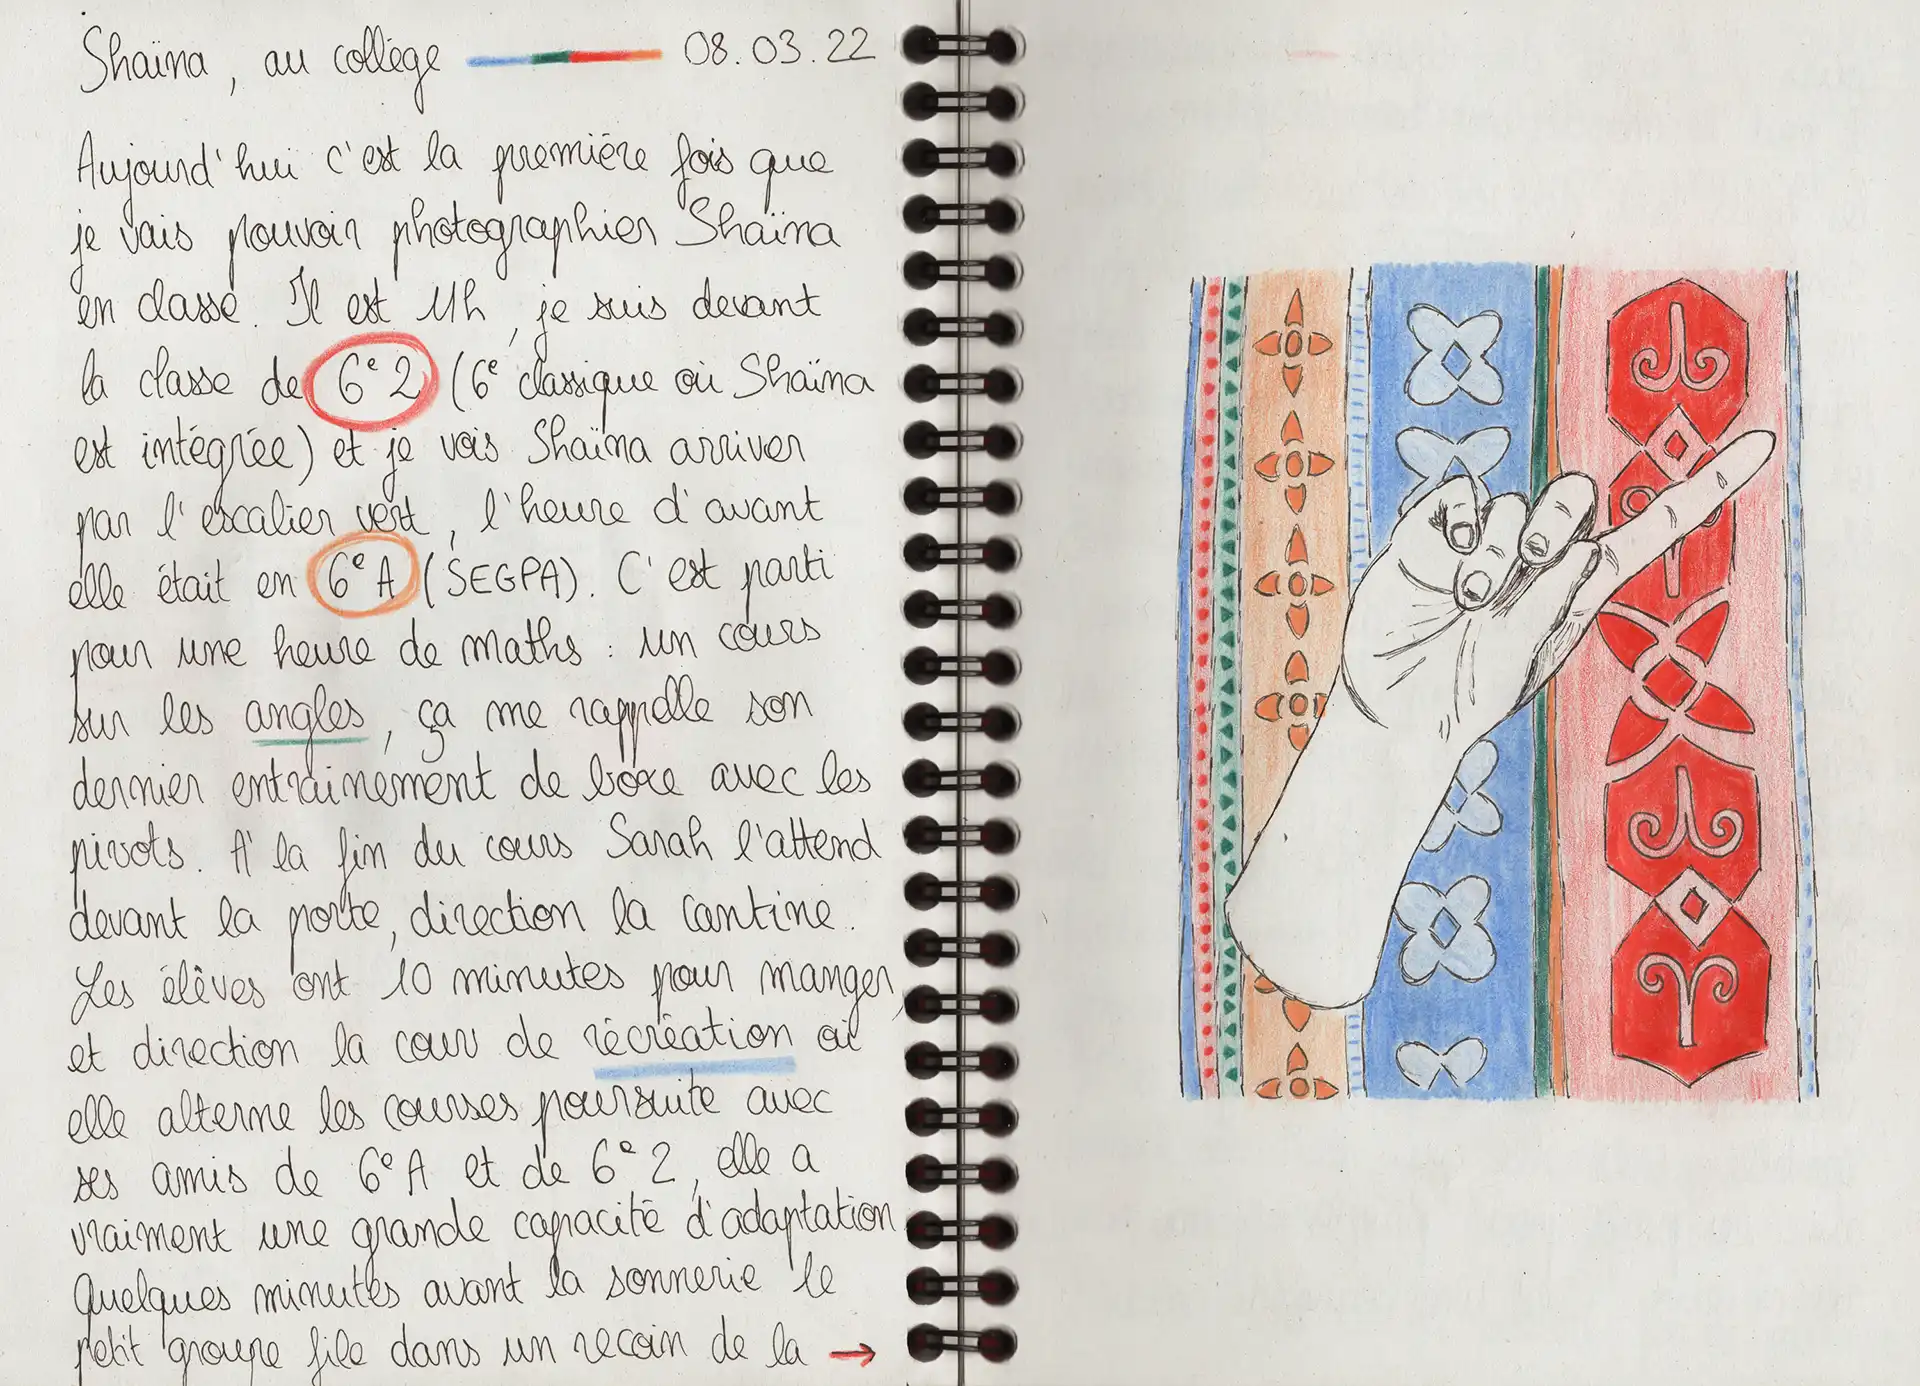 Shaïna, au collège 08.03.22
Aujourd'hui c'est la première fois que
je vais pouvoir photographier Shaïna
en classe. Il est 11h, je suis devant
la classe de 6e2 (6e classique où Shaïna
est intégrée) et je vois Shaïna arriver
par l'escalier vert, l'heure d'avant
elle était en 6eA (SEGPA). C'est parti
pour une heure de maths : un cours
sur les angles, ça me rappelle son
dernier entrainement de boxe avec les
pivots. A la fin du cours Sarah l'attend
devant la porte, direction la cantine.
Les élèves ont 10 minutes pour manger,
et direction la cour de récréation où
elle alterne les courses poursuite avec
ses amis de 6eA et de 6e2, elle a
vraiment une grande capacité d'adaptation
Quelques minutes avant la sonnerie le
petit groupe file dans un recoin de la →